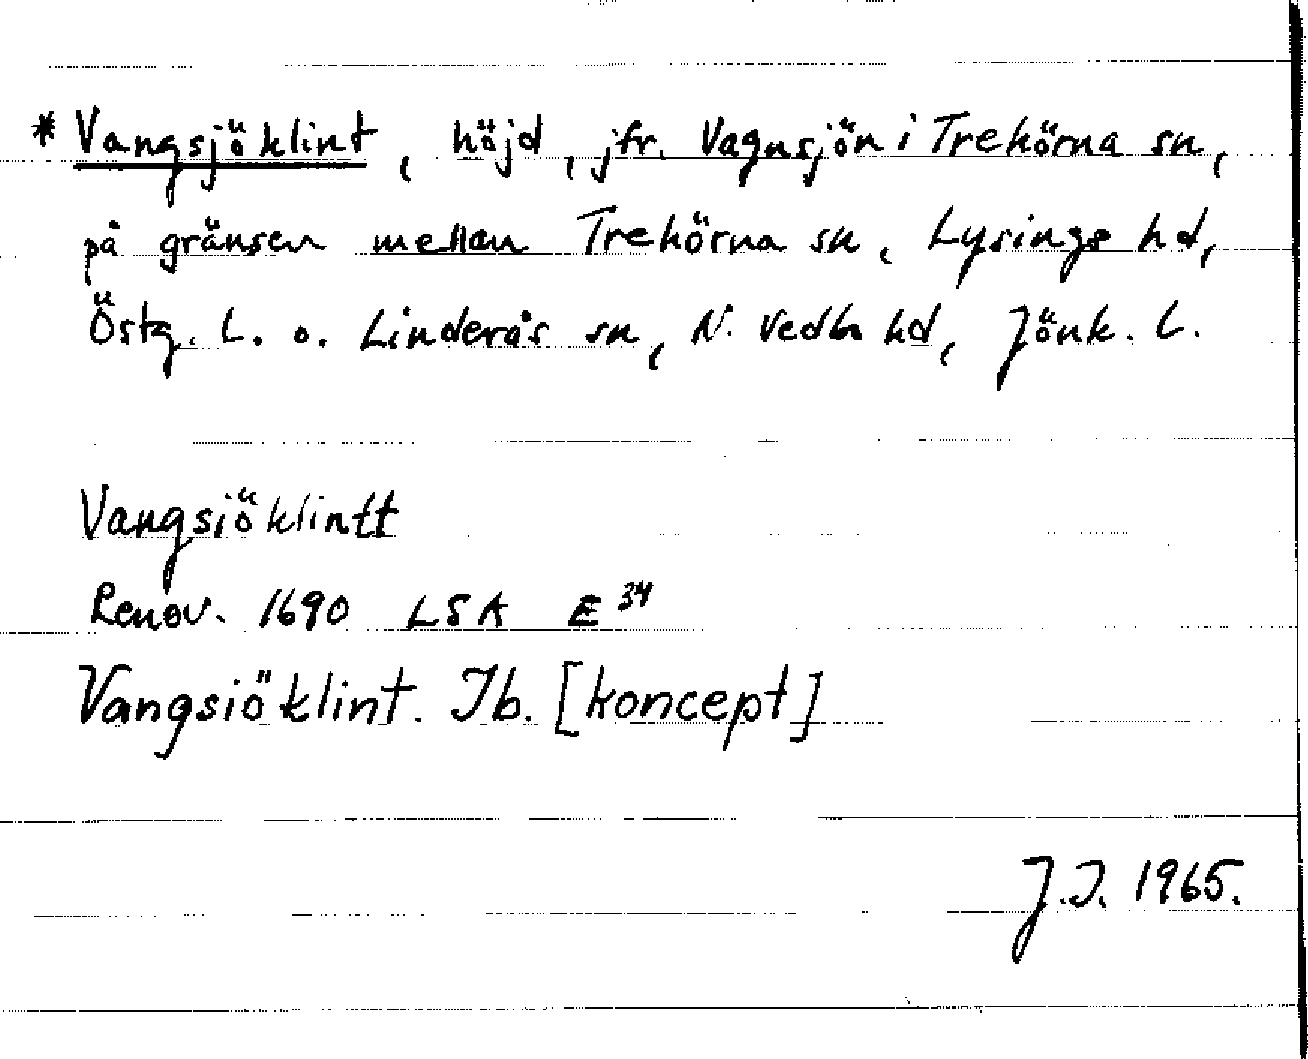 * Vangsjöklint, höjd, jfr. Vagnsjön i Trehörna sn,
på gränsen mellan Trehörna sn, Lysings hd,
Östg. L. o. Linderås sn, N. Vedbo hd, Jönk. L.
Vangsiöklintt
Renov. 1690 LSA E³⁴
Vangsiöklint. Ib. [koncept]
J.I. 1965.